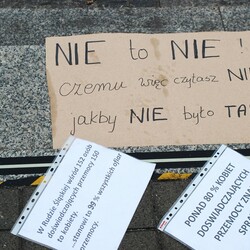 NIE to NIE !
czemu więc czytasz NI
jakby NIE było TA
W Rudzie Śląskiej wśród 152 osób
doświadczających przemocy 150
to kobiety.
...stanowi to 99 % wszystkich ofiar
przemocy.
PONAD 80 % KOBIET
DOŚWIADCZAJĄCYCH
PRZEMOCY ZNA